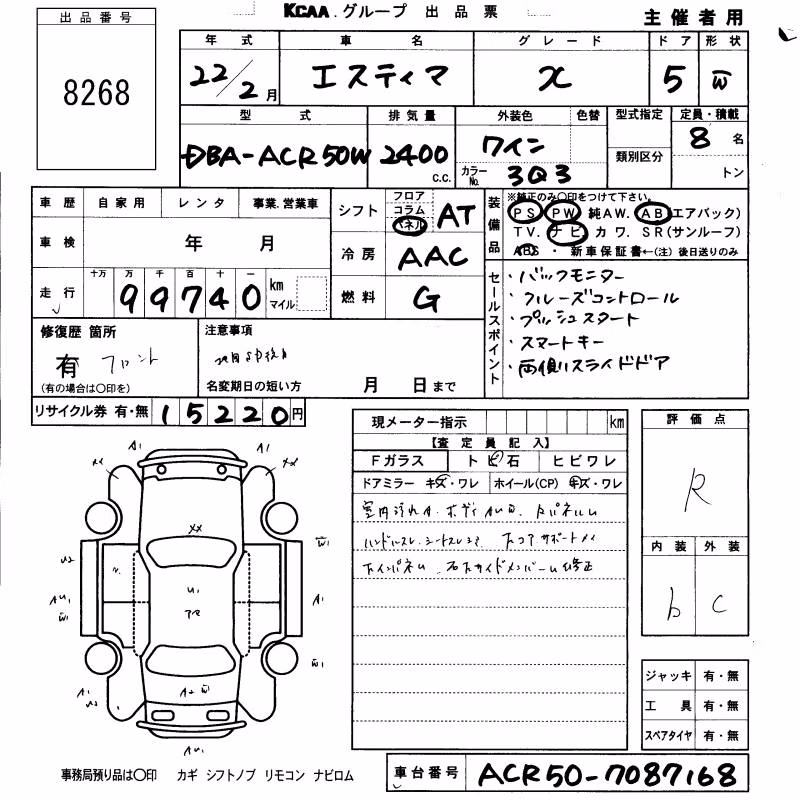 KCAA.グループ 出品票
主催者用
出品番号
8268
年式 車名 グレード ドア 形状
22/2月 エスティマ X 5 W
型式 排気量 外装色 色替 型式指定 定員・積載
DBA-ACR50W 2400 c.c. ワイン 類別区分 8名
カラーNo. 3Q3 トン
車歴 自家用 レンタ 事業.営業車
車検 年 月
走行 十万 万 千 百 十 一 km マイル
99740
シフト フロア コラム パネル AT
冷房 AAC
燃料 G
装備品
※純正のみ○印をつけて下さい。
PS PW 純AW. AB(エアバック)
TV. ナビ カワ. SR(サンルーフ)
ABS ・ 新車保証書←(注)後日送りのみ
セールスポイント
・バックモニター
・クルーズコントロール
・プッシュスタート
・スマートキー
・両側スライドドア
修復歴 箇所
有 フロント
(有の場合は○印を)
注意事項
名変期日の短い方 月 日まで
リサイクル券 有・無 15220円
現メーター指示 km
【査定員記入】
Fガラス トビ石 ヒビワレ
ドアミラー キズ・ワレ ホイール(CP) キズ・ワレ
評価点
R
内装 外装
b c
ジャッキ 有・無
工具 有・無
スペアタイヤ 有・無
A1
XX XX
XX
U2 W1
U1
AU1 A1
W1
A1 W1
U2
A2 W
AU1
事務局預り品は○印 カギ シフトノブ リモコン ナビロム
車台番号 ACR50-7087168